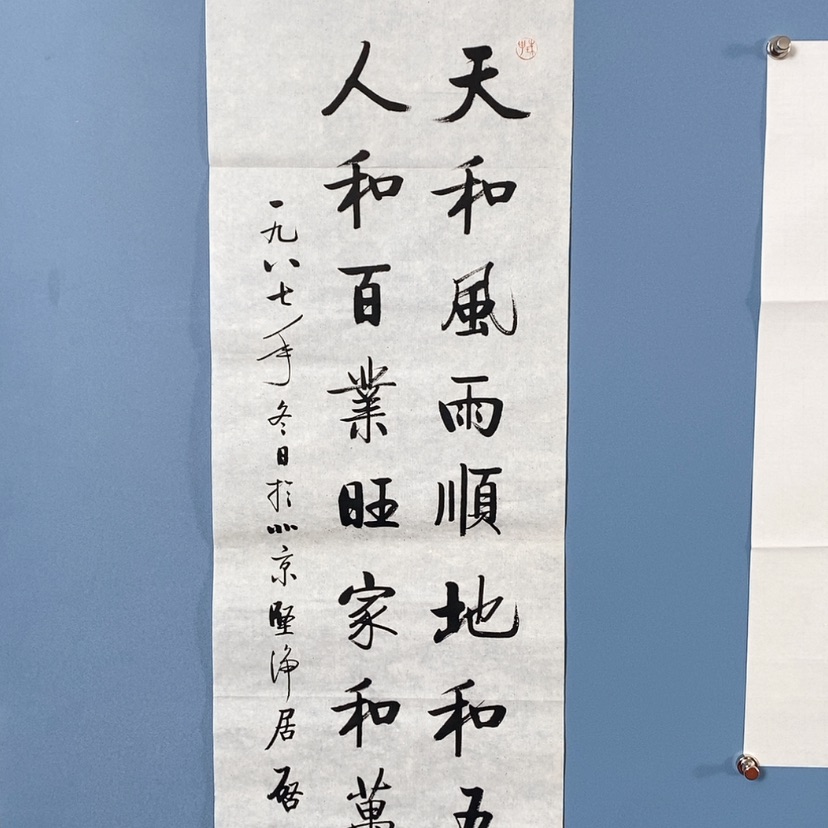 天和風雨順地和五
人和百業旺家和萬
一九八七年冬日於北京堅淨居啓